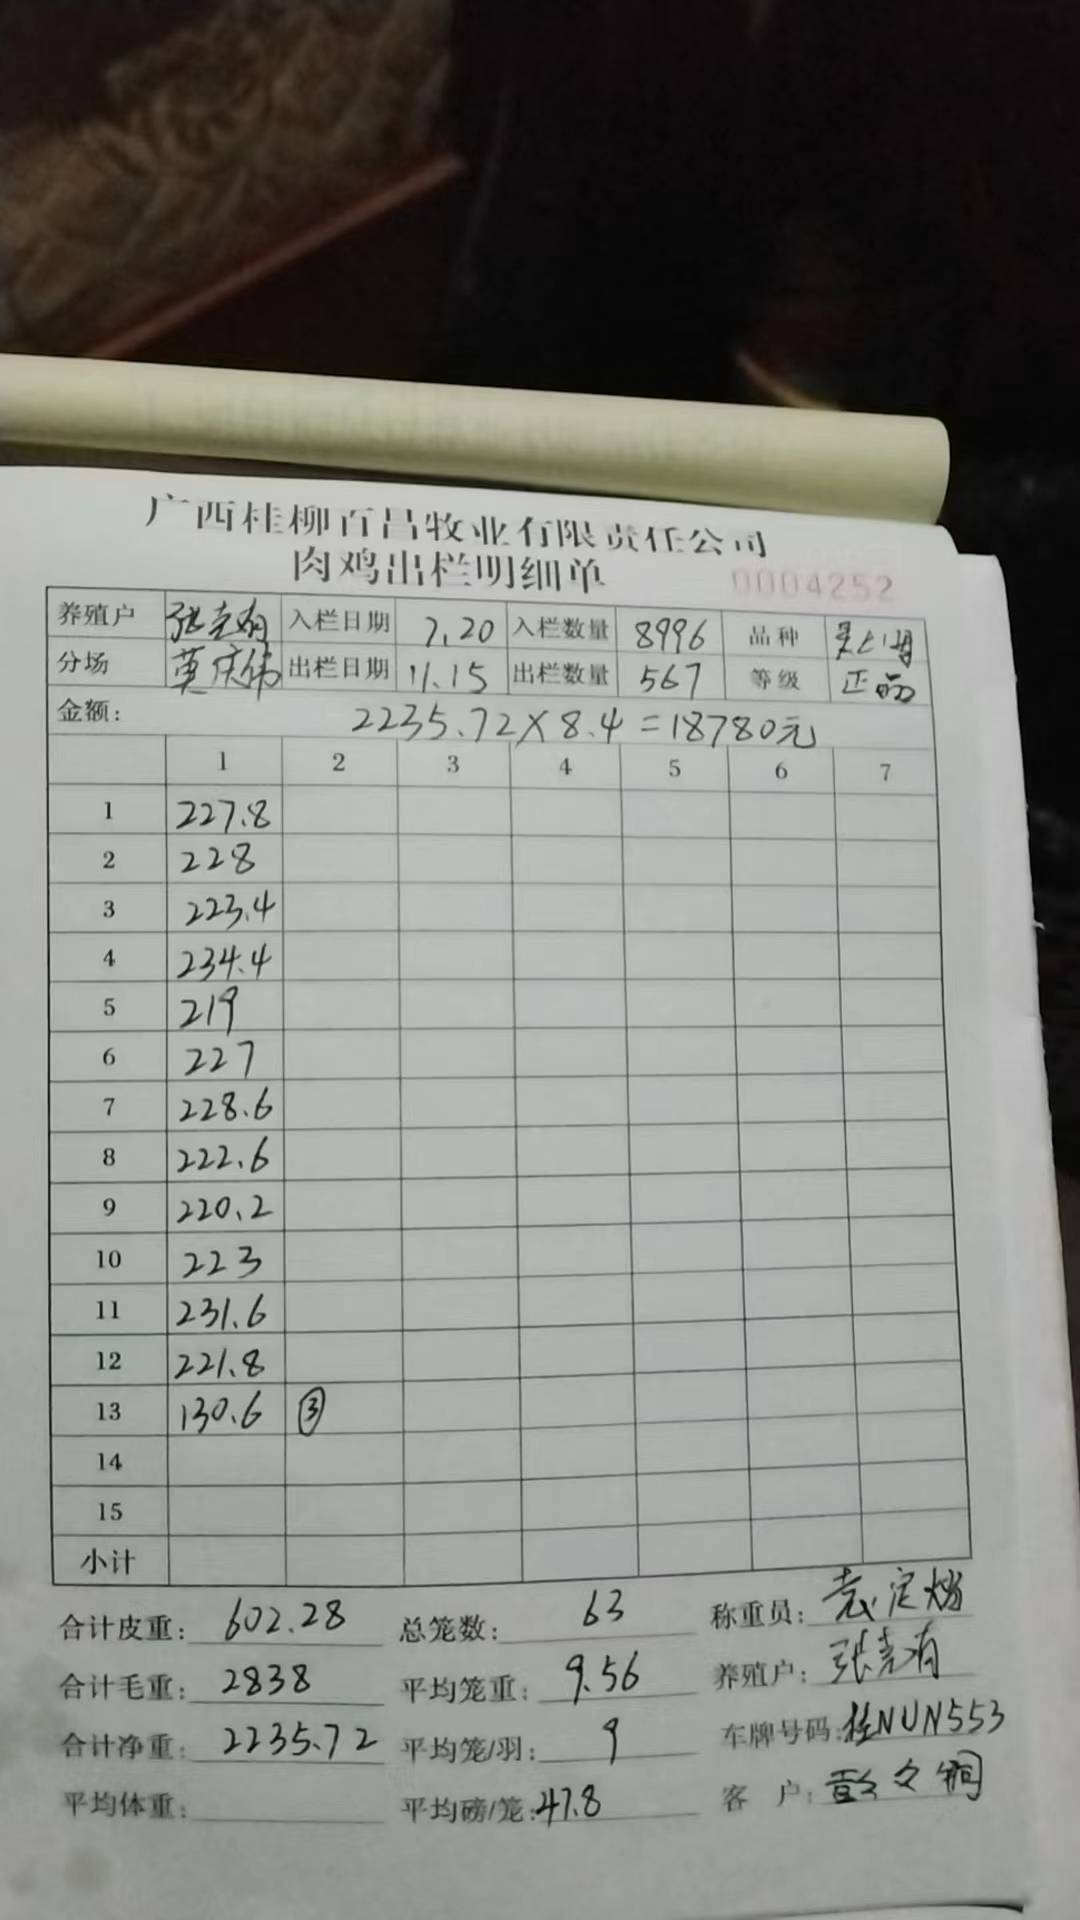 广西桂柳百昌牧业有限责任公司
肉鸡出栏明细单 0004252
养殖户 入栏日期 7.20 入栏数量 8996 品种
分场 莫庆伟 出栏日期 11.15 出栏数量 567 等级 正品
金额: 2235.72×8.4=18780元
1 2 3 4 5 6 7
1 227.8
2 228
3 223.4
4 234.4
5 219
6 227
7 228.6
8 222.6
9 220.2
10 223
11 231.6
12 221.8
13 130.6 ③
14
15
小计
合计皮重: 602.28 总笼数: 63 称重员: 袁定
合计毛重: 2838 平均笼重: 9.56 养殖户: 张
合计净重: 2235.72 平均笼/羽: 9 车牌号码: 桂NUN553
平均体重: 平均磅/笼: 47.8 客户: